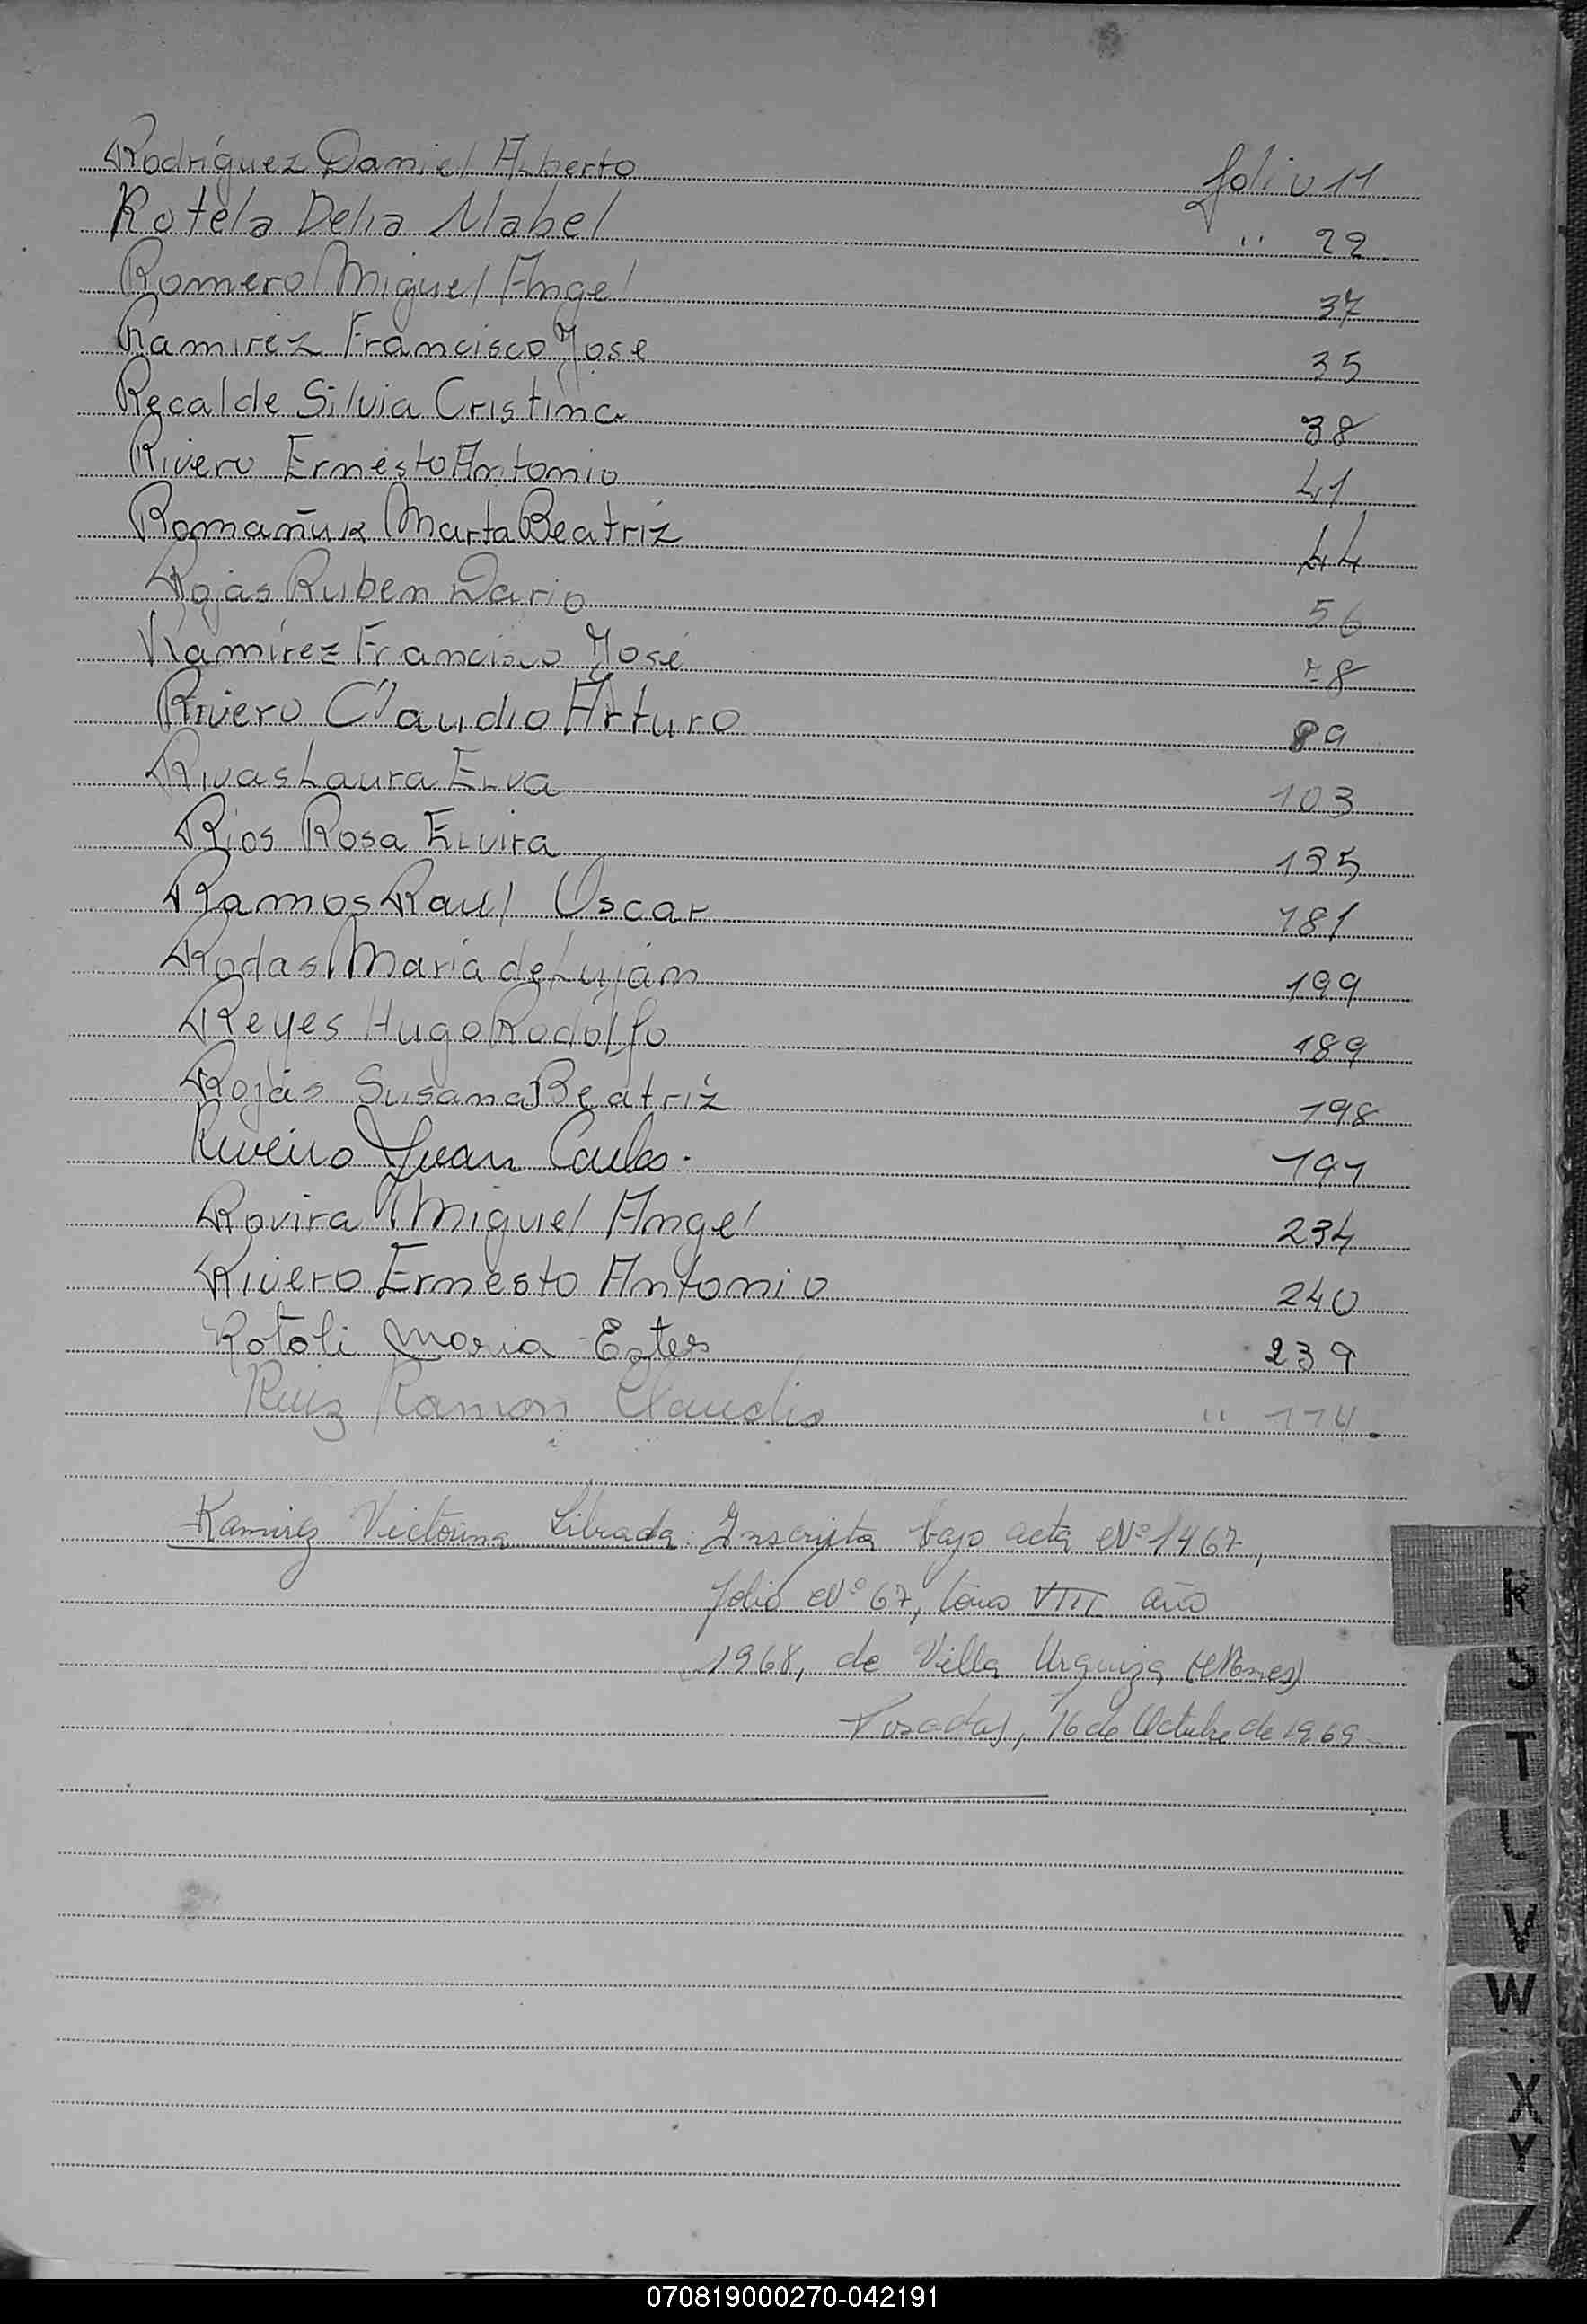 Rodríguez Daniel Alberto folio 11
Rotela Delia Mabel " 22
Romero Miguel Angel 37
Ramirez Francisco José 35
Recalde Silvia Cristina 38
Rivero Ernesto Antonio 41
Romañuk Marta Beatríz 44
Rojas Ruben Dario 56
Ramírez Francisco José 78
Rivero Claudio Arturo 89
Rivas Laura Elva 103
Ríos Rosa Elvira 135
Ramos Raul Oscar 181
Rodas María de Luján 199
Reyes Hugo Rodolfo 189
Rojas Susana Beatríz 198
Riveiro Juan Carlos. 191
Rovira Miguel Angel 234
Rivero Ernesto Antonio 240
Rotoli Maria Ester 239
Ruiz Ramon Claudio " 114.
Ramirez Victorina Librada: Inscripta bajo acta Nº 1467,
folio Nº 67, tomo VIII año
1968, de Villa Urquiza (Mnes)
Posadas, 16 de Octubre de 1969
R
S
T
U
V
W
X
Y
070819000270-042191